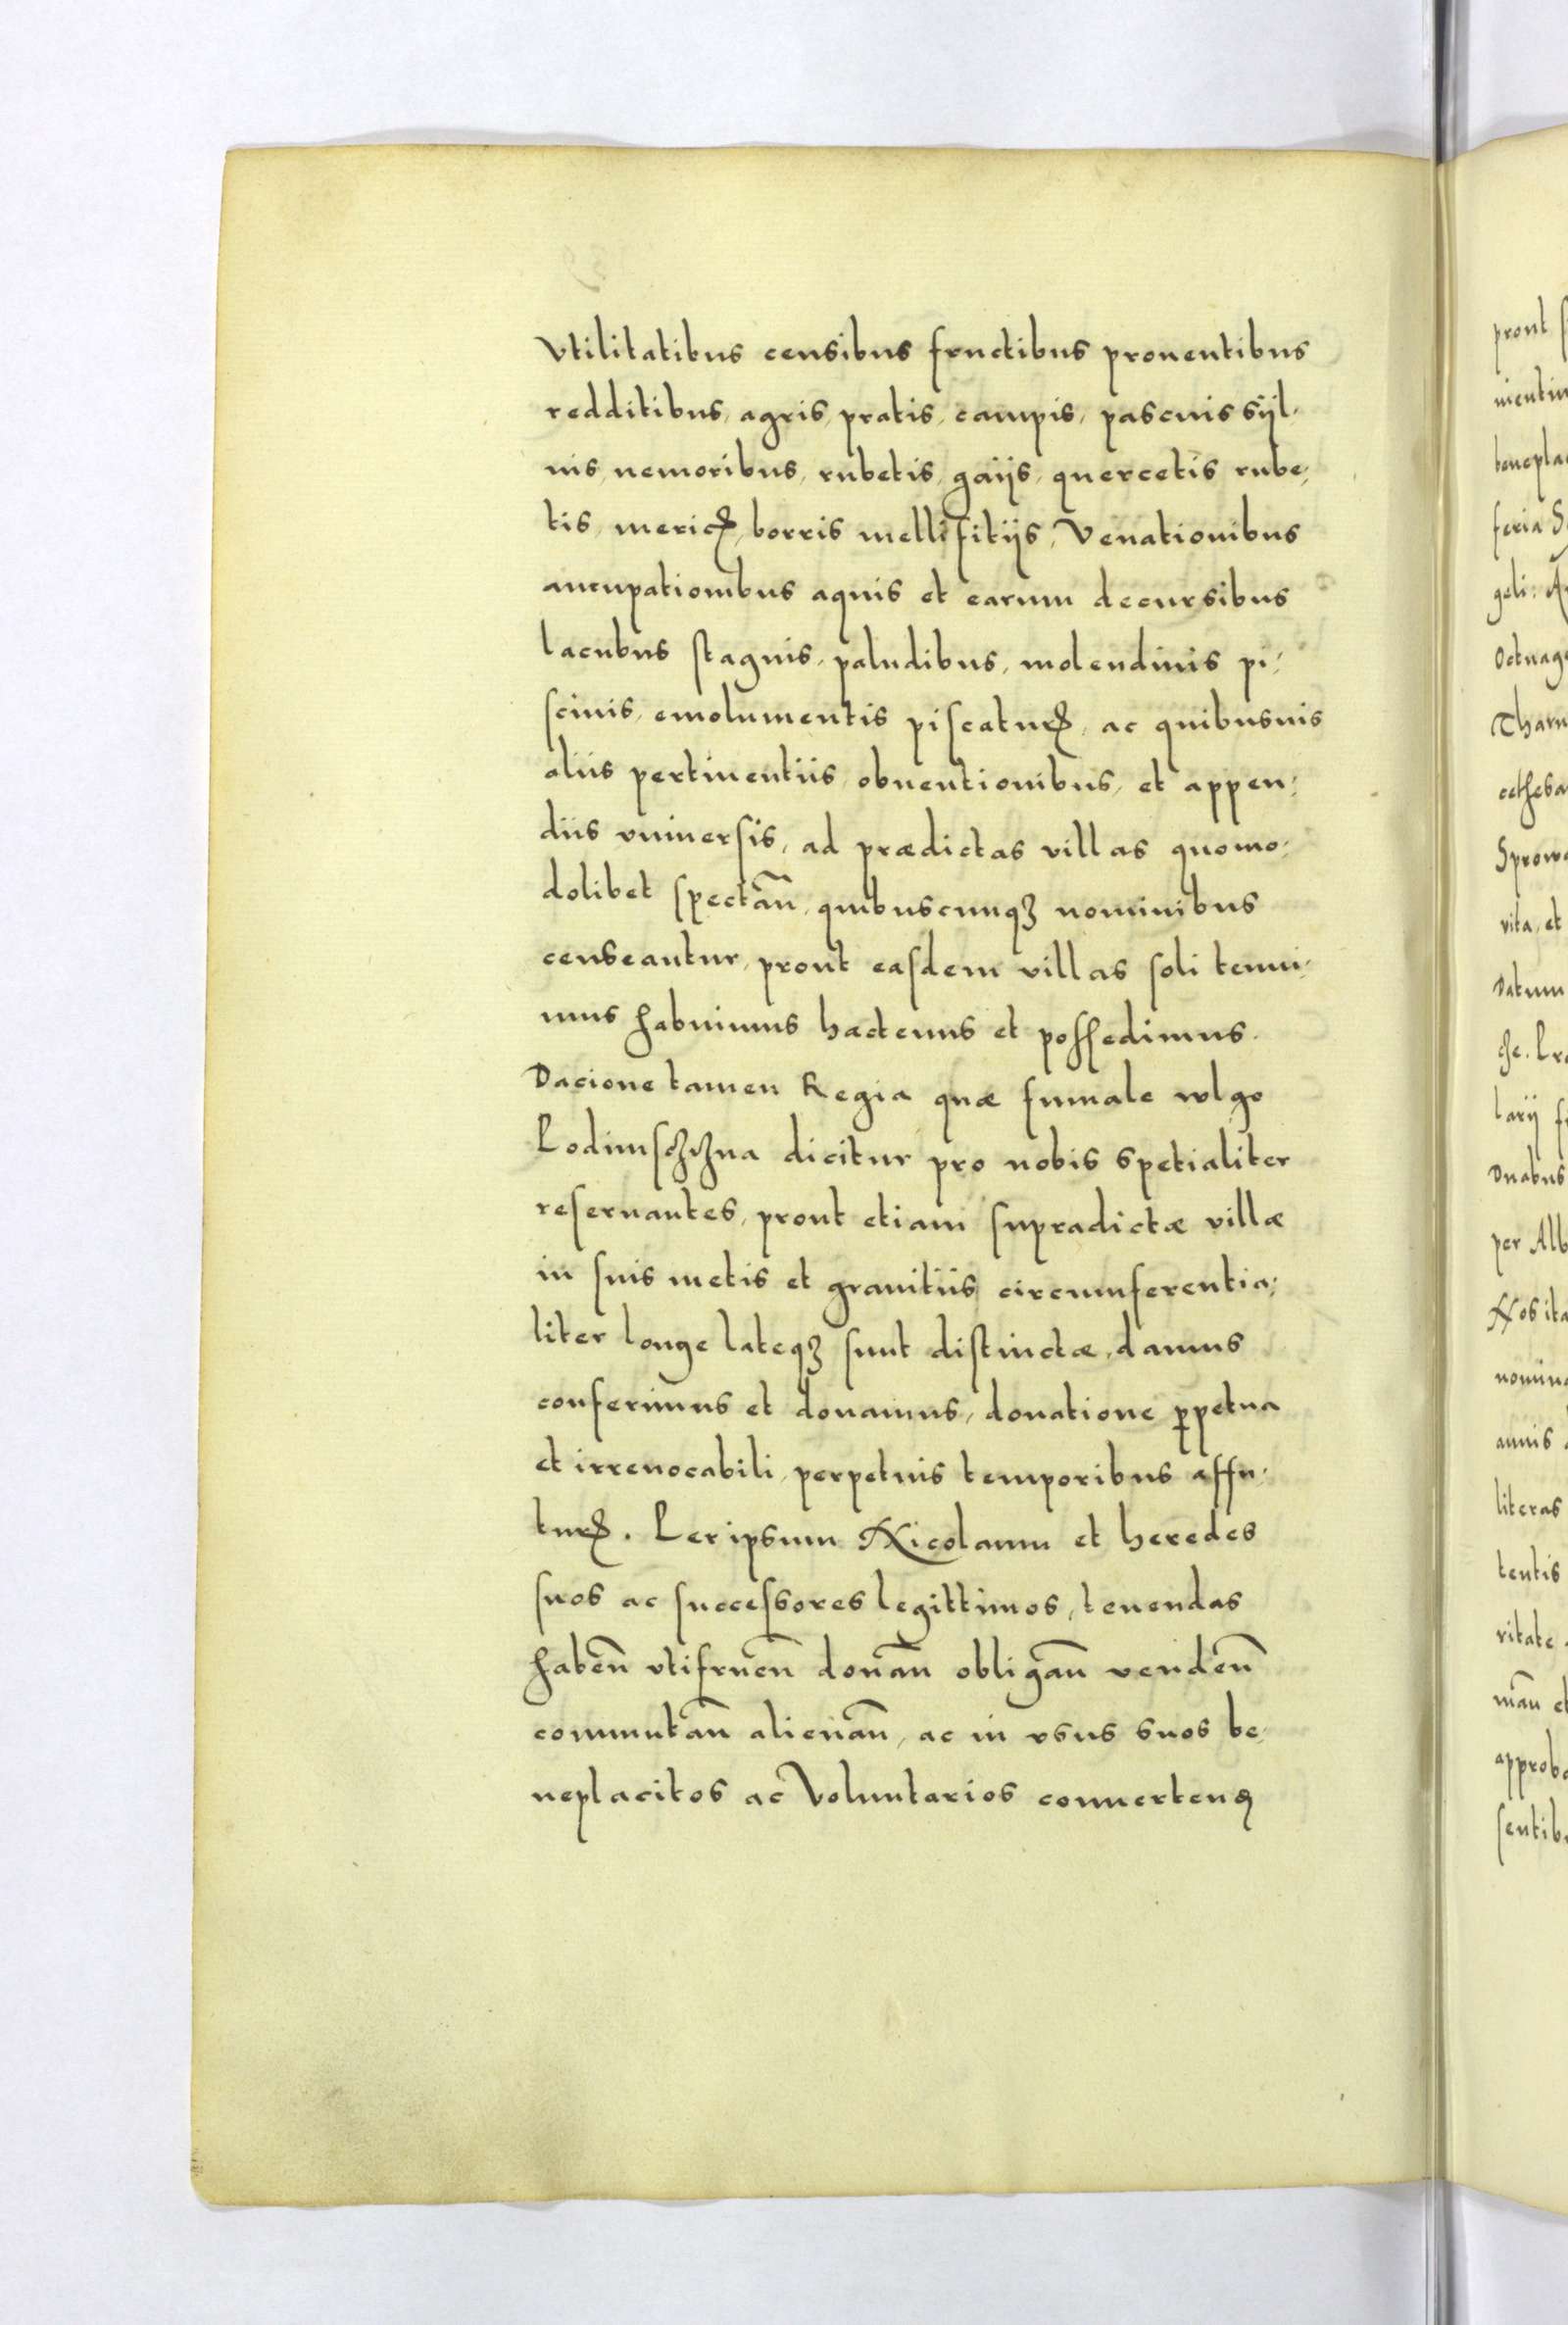 Vtilitatibus censibus fructibus prouentibus
redditibus, agris, pratis, campis, pascuis sÿl-
uis, nemoribus, rubetis, gaijs, quercetis rube-
tis, mericꝝ, borris mellifitijs, Venationibus
aucupationibus aquis et earum decursibus
lacubus stagnis, paludibus, molendinis pi-
scinis, emolumentis piscatuꝝ, ac quibusuis
aliis pertinentiis, obuentionibus, et appen-
diis vniuersis, ad prædictas villas quomo-
dolibet spectān̄, quibuscunqꝫ nominibus
censeantur, prout easdem villas soli tenui-
mus habuimus hactenus et possedimus.
Dacione tamen Regia quæ fumale wlgo
Podimschchna dicitur pro nobis spetialiter
reseruantes, prout etiam supradictæ villæ
in suis metis et granitiis circumferentia-
liter longe lateqꝫ sunt distinctæ, damus
conferimus et donamus, donatione ꝑpetua
et irreuocabili, perpetuis temporibus affu-
tuꝝ. Per ipsum Nicolaum et heredes
suos ac successores legittimos, tenendas
haben̄ vtifruen̄ donan̄ obligan̄ venden̄
commutan̄ alienan̄, ac in vsus suos be-
neplacitos ac Voluntarios conuertenꝰ
prout
beneplac
feria S
geli:
Octuage
Tharn
Sprow
vita, et
Datum
larij
Duabus
per Alb
Nos ita
nomina
annis
literas
tentis
ritate
man̄ et
approba
sentib